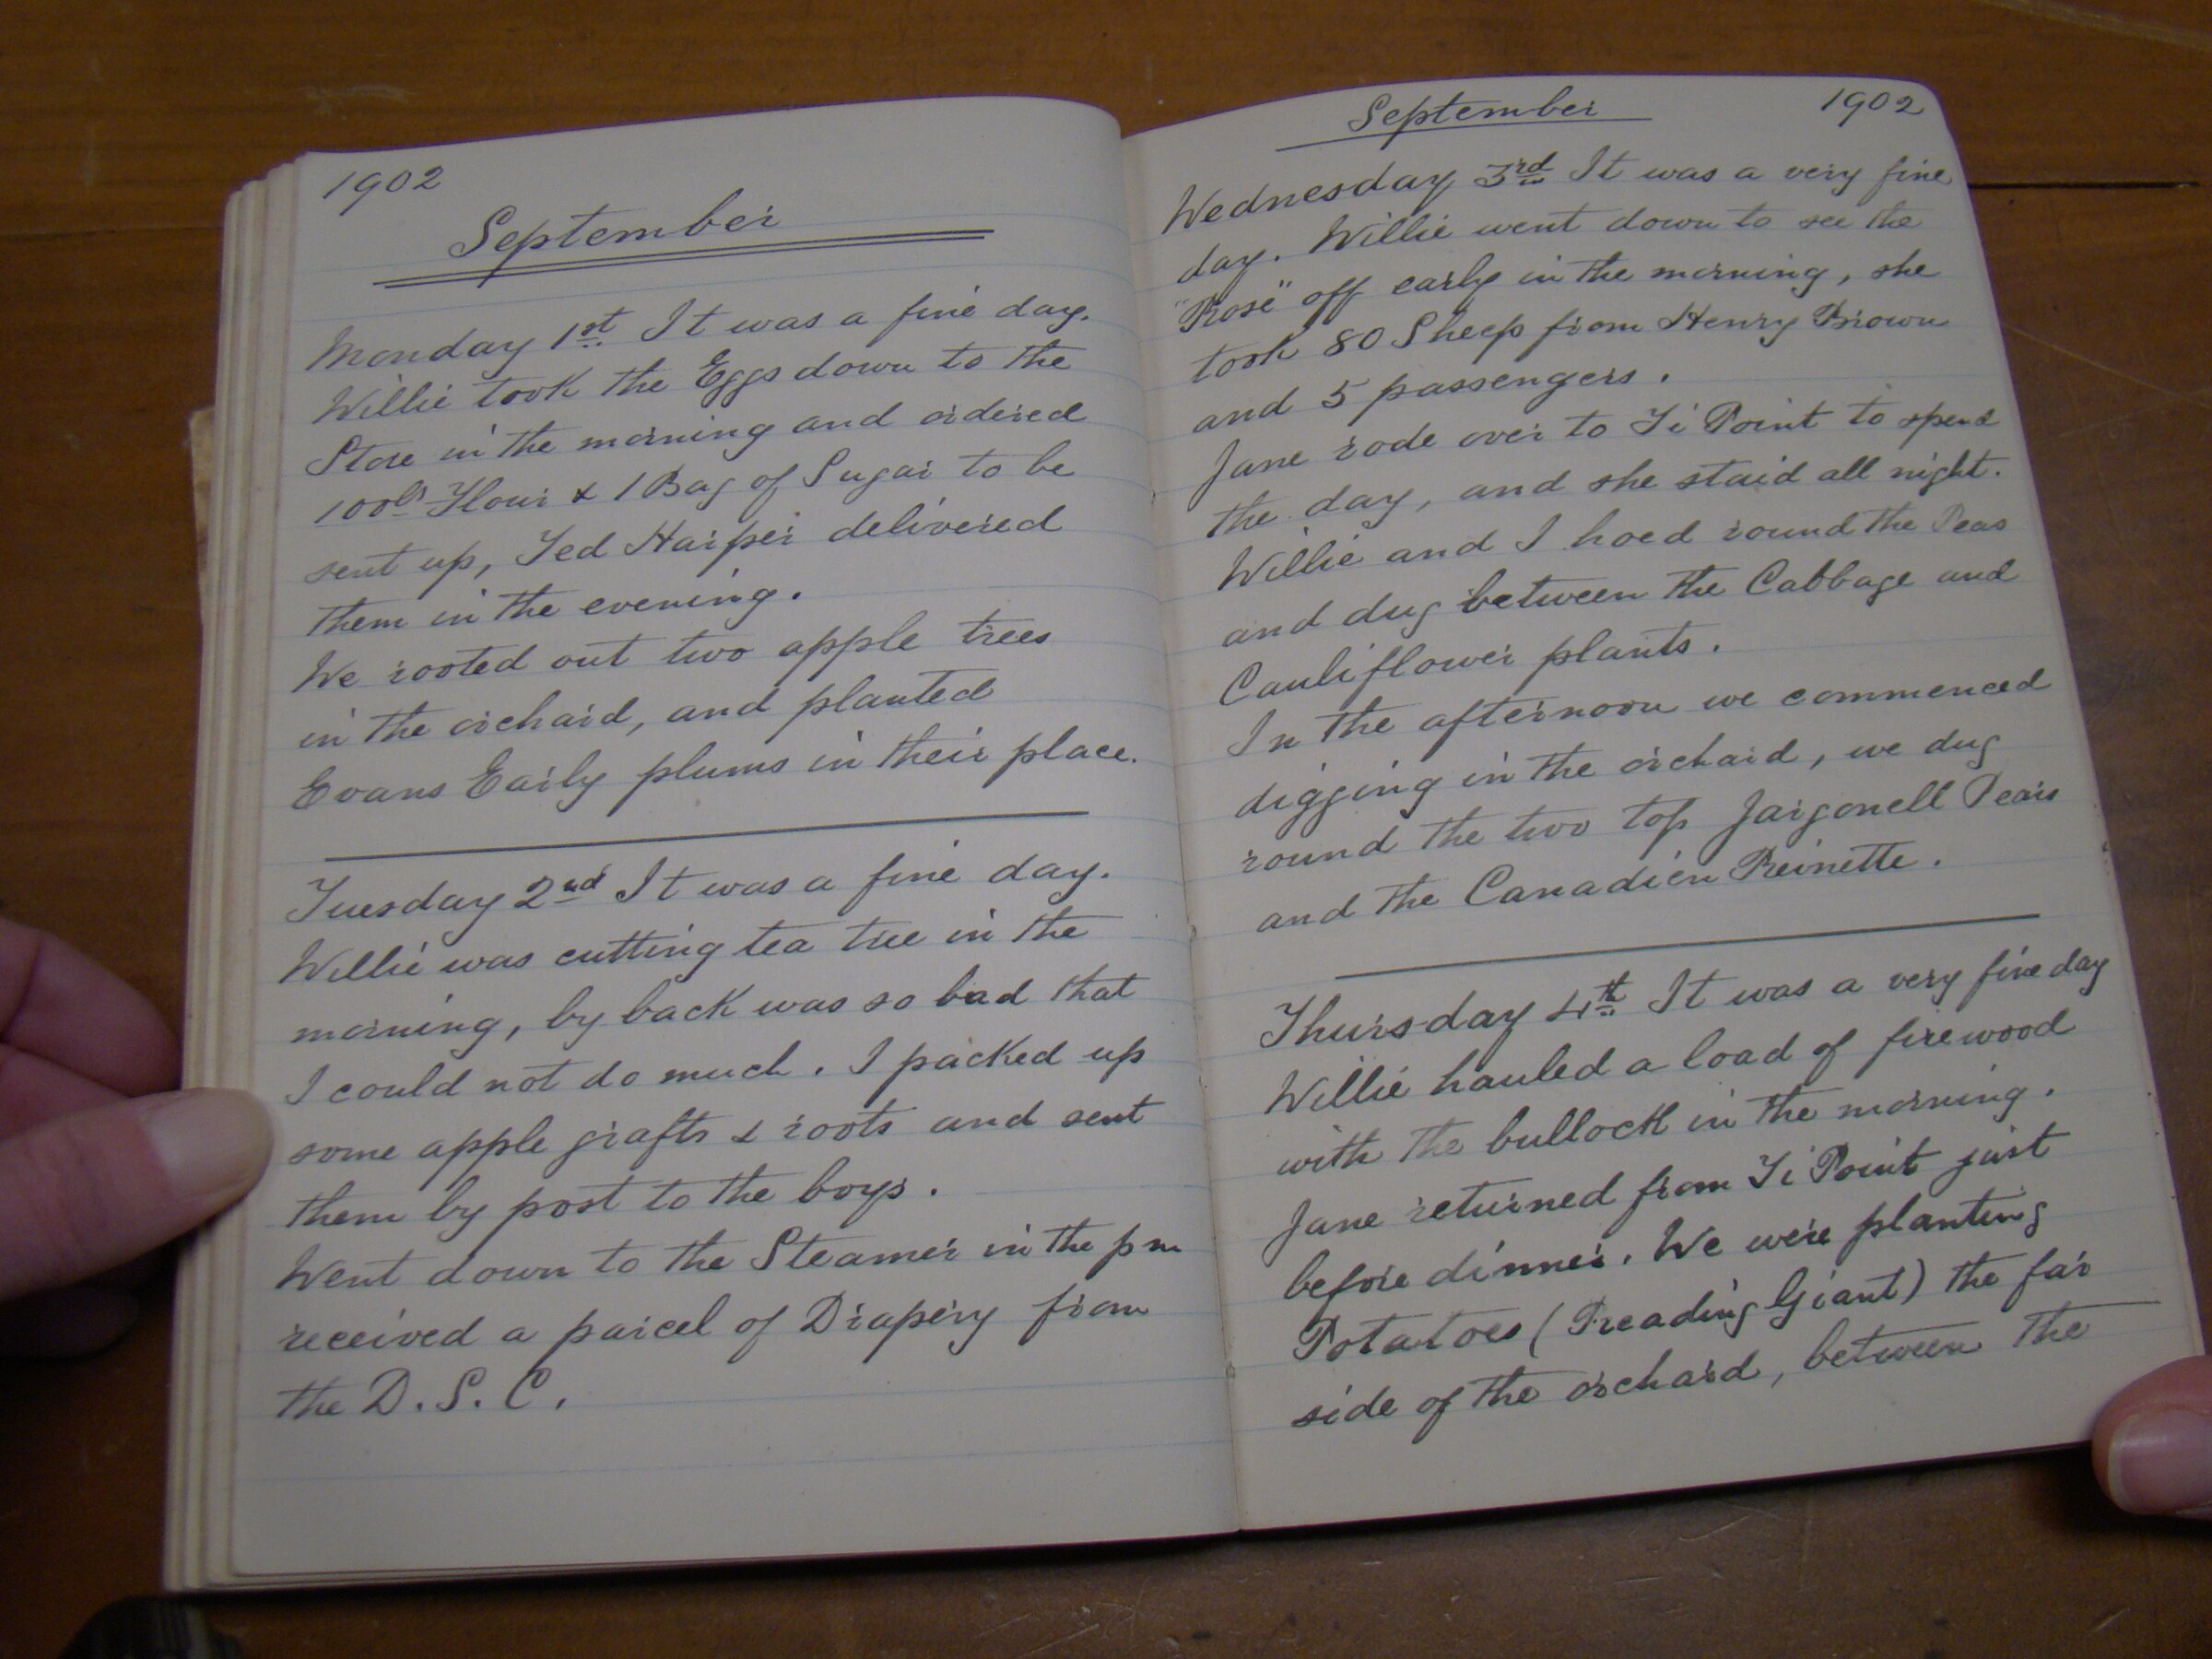 1902
September
Monday 1st It was a fine day.
Willie took the Eggs down to the
Store in the morning and ordered
100lb Flour & 1 Bag of Sugar to be
sent up, Ted Harper delivered
them in the evening.
We rooted out two apple trees
in the orchard, and planted
Evans Early plums in their place.
Tuesday 2nd It was a fine day.
Willie was cutting tea tree in the
morning, by back was so bad that
I could not do much. I packed up
some apple grafts & roots and sent
them by post to the boys.
Went down to the Steamer in the pm
received a parcel of Drapery from
the D.S.C.
September 1902
Wednesday 3rd It was a very fine
day. Willie went down to see the
"Rose" off early in the morning, she
took 80 Sheep from Henry Brown
and 5 passengers.
Jane rode over to Ti Point to spend
the day, and she staid all night.
Willie and I hoed round the Peas
and dug between the Cabbage and
Cauliflower plants.
In the afternoon we commenced
digging in the orchard, we dug
round the two top Jargonell Pears
and the Canadien Reinette.
Thursday 4th It was a very fine day
Willie hauled a load of firewood
with the bullock in the morning.
Jane returned from Ti Point just
before dinner. We were planting
Potatoes (Reading Giant) the far
side of the orchard, between the